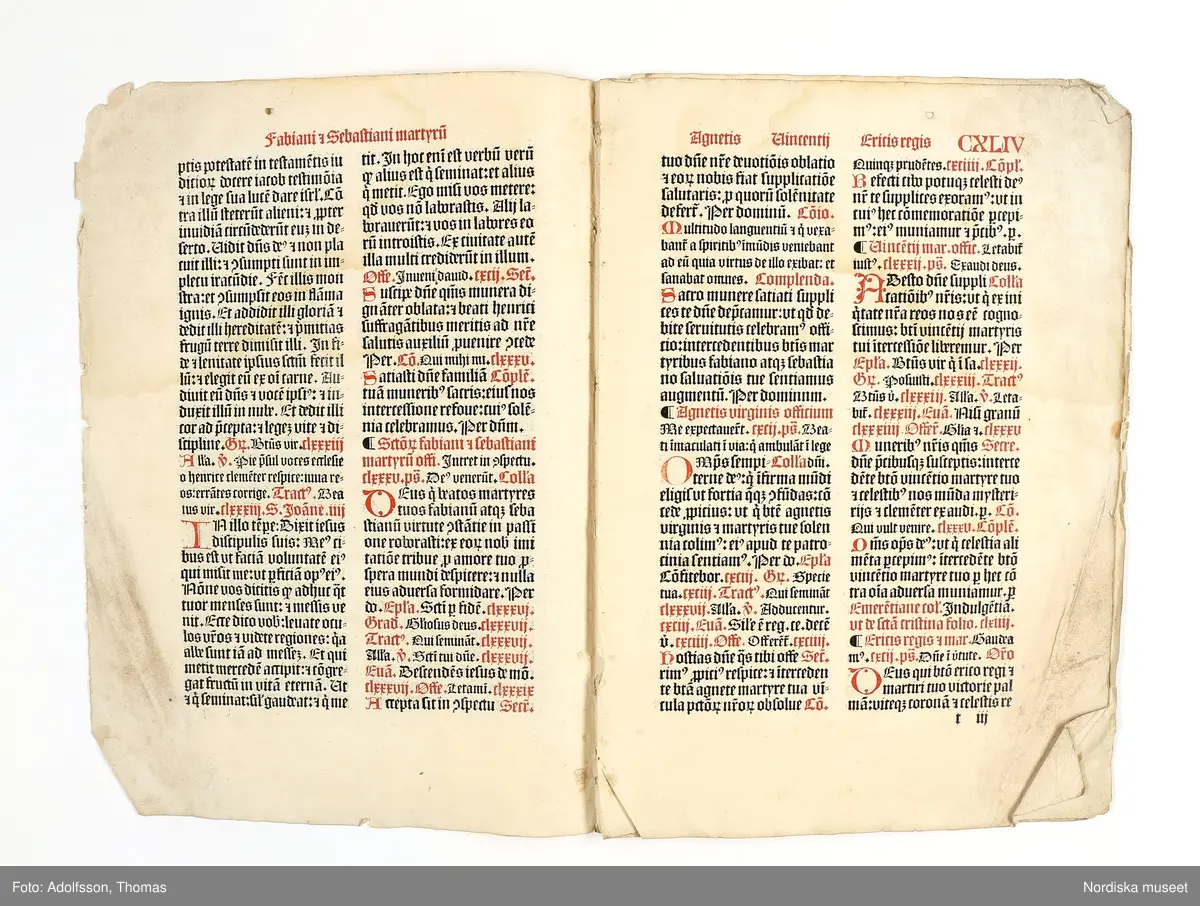 Fabiani ⁊ Sebastiani martyrū
ptis potestatē in testamētis iu
dicioꝝ docere iacob testimōia
⁊ in lege sua lucē dare isrł. Cō
tra illū steterūt alieni: ⁊ ꝓpter
inuidiā circūdederūt euꝫ in de-
serto. Uidit dn̄s deꝰ ⁊ non pla
cuit illi: ⁊ ꝯsumpti sunt in im-
petu iracūdie. Fēt illis mon
stra: et ꝯsumpsit eos in flāma
ignis. Et addidit illi gloriā ⁊
dedit illi hereditatē: ⁊ pͥmitias
frugū terre dimisit illi. In fi-
de ⁊ lenitate ipsius sctm̄ fecit il
lū: ⁊ elegit eū ex oī carne. Au-
diuit eū dn̄s ⁊ vocē ipsiꝰ: ⁊ in-
duxit illū in nubē. Et dedit illi
cor ad p̄cepta: ⁊ legeꝫ vite ⁊ di-
scipline. Gr̄. Btūs vir. clxxxiij
Alła. v̄. Pie p̄sul voces ecclesie
o henrice clemēter respice: nŕa re-
os: errātes corrige. Tractꝰ. Bea
tus vir. clxxxiij. S. Joāne. iiij
IN illo tēpe: Dixit iesus
discipulis suis: Meꝰ ci-
bus est vt faciā voluntatē eiꝰ
qui misit me: vt ꝑficiā opꝰ eiꝰ.
Nōne vos dicitis ꝙ adhuc q̄t
tuor menses sunt: ⁊ messis ve
nit. Ecce dico vob: leuate ocu-
los vr̄os ⁊ videte regiones: q̄a
albe sunt iā ad messeꝫ. Et qui
metit mercedē accipit: ⁊ cōgre-
gat fructū in vitā eternā. Ut
⁊ q̄ seminat: sił gaudeat: ⁊ q̄ me
tit. In hoc enī est verbū verū
ꝙ alius est q̄ seminat: et alius
q̄ metit. Ego misi vos metere:
qd̄ vos nō laborastis. Alij la-
borauerūt: ⁊ vos in labores eo
rū introistis. Ex ciuitate autē
illa multi crediderūt in illum.
Offe. Inueni dauid. cxcij. Secr̄.
Suscipe dn̄e q̄m̄s munera di-
gnāter oblata: ⁊ beati henrici
suffragātibus meritis ad nr̄e
salutis auxiliū ꝓuenire ꝯcede
Per. Cō. Qui mihi mi. clxxxv.
Satiasti dn̄e familiā Cōplē.
tuā muneribꝰ sacris: eius nos
intercessione refoue: cuiꝰ solē-
nia celebramus. Per dn̄m.
¶ Sctōꝝ fabiani ⁊ sebastiani
martyrū offi. Intret in ꝯspectu.
clxxxv. ps̄. Deꝰ venerūt. Colla
DEus q̄ beatos martyres
tuos fabianū atqꝫ seba
stianū virtute ꝯstātie in passi
one roborasti: ex eoꝝ nob imi
tatiōe tribue ꝓ amore tuo ꝓ-
spera mundi despicere: ⁊ nulla
eius aduersa formidare. Per
do. Epła. Scti ꝑ fidē. clxxxvj.
Grad̄. Głiosus deus. clxxxvij.
Tractꝰ. Qui semināt. clxxxvij.
Alła. v̄. Scti tui dn̄e. clxxxvij.
Euā. Descendēs iesus de mō.
clxxxvij. Offe. Letamī. clxxxix
Accepta sit in ꝯspectu Secr̄.
Agnetis Uincentij Erici regis CXLIV
tuo dn̄e nr̄e deuotiōis oblatio
⁊ eoꝝ nobis fiat supplicatiōe
salutaris: ꝓ quorū solēnitate
defert̄. Per dominū. Cōio.
Multitudo languentiū ⁊ q̄ vexa-
bant̄ a spiritibꝰ imūdis veniebant
ad eū quia virtus de illo exibat: et
sanabat omnes. Complenda.
Sacro munere satiati suppli
ces te dn̄e dep̄camur: vt qd̄ de-
bite seruitutis celebramꝰ offi-
cio: intercedentibus btīs mar
tyribus fabiano atqꝫ sebastia
no saluatiōis tue sentiamus
augmentū. Per dominum.
¶ Agnetis virginis officium
Me expectauert̄. cxcij. ps̄. Bea-
ti imaculati ī via: q̄ ambulāt ī lege
OMp̄s sempi- Colla dn̄i.
terne deꝰ: q̄ ifirma mūdi
eligis vt fortia q̄qꝫ ꝯfūdas: cō
cede ꝓpicius: vt q̄ btē agnetis
virginis ⁊ martyris tue solen
nia colimꝰ: eiꝰ apud te patro-
cinia sentiamꝰ. Per do. Epła
Cōfitebor. cxciij. Gr̄. Specie
tua. cxciij. Tractꝰ. Qui semināt
clxxxvij. Alła. v̄. Adducentur.
cxciij. Euā. Siłe ē reg. ce. decē
v̄. cxciiij. Offe. Offerēt. cxciiij.
Hostias dn̄e q̄s tibi offe Secr̄.
rimꝰ ꝓpiciꝰ respice: ⁊ itercedēn
te btā agnete martyre tua vi-
cula pctōꝝ nr̄oꝝ obsolue Cō.
Quinqꝫ prudētes. cxciiij. Cōpł.
Refecti cibo potuqꝫ celesti deꝰ
nr̄ te supplices exoramꝰ: vt in
cuiꝰ hec cōmemoratiōe ꝑcepi-
mꝰ: eiꝰ muniamur ⁊ p̄cibꝰ. ꝑ.
¶ Uincētij mar. offit. Letabit̄
iustꝰ. clxxxij. ps̄. Exaudi deus.
ADesto dn̄e suppli Colla
catiōibꝰ nr̄is: vt q̄ ex ini
q̄tate nr̄a reos nos eē cogno-
scimus: btī vincētij martyris
tui itercessiōe liberemur. Per
Epła. Btūs vir q̄ i sa. clxxxij.
Gr̄. Posuisti. clxxxiij. Tractꝰ
Btūs v. clxxxiij. Alła. v̄. Leta-
bit̄. clxxxiij. Euā. Nisi granū
clxxxiiij. Offer̄. Głia ⁊. clxxxv
Muneribꝰ nr̄is q̄m̄s Secre.
dn̄e p̄cibusqꝫ susceptis: interce
dēte btō vincētio martyre tuo
⁊ celestibꝰ nos mūda mysteri-
rijs ⁊ clemēter exaudi. ꝑ. Cō.
Qui vult venire. clxxxv. Cōplē.
Om̄s op̄s deꝰ: vt q̄ celestia ali
mēta ꝑcepimꝰ: itercedēte btō
vincētio martyre tuo ꝑ hec cō
tra oīa aduersa muniamur. ꝑ
Emerētiane coł. Indulgētiā.
vt de sctā cristina folio. clxiij.
¶ Erici regis ⁊ mar. Gaudea
mꝰ. cxcij. ps̄. Dn̄e ī v̄tute. Or̄o
DEus qui btō erico regi ⁊
martiri tuo victorie pal
mā: viteqꝫ coronā ⁊ celestis re
t iij
Foto: Adolfsson, Thomas
Nordiska museet